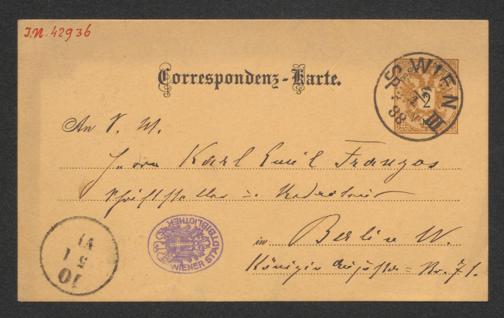 I.N. 42936
Correspondenz-Karte.
WIEN III
88
2
An S. W.
Herrn Karl Emil Franzos
Schriftsteller u. Redacteur
in Berlin W.
Königin Augusta Nr. 71.
WIENER STADTBIBLIOTHEK
10
5 1
VI